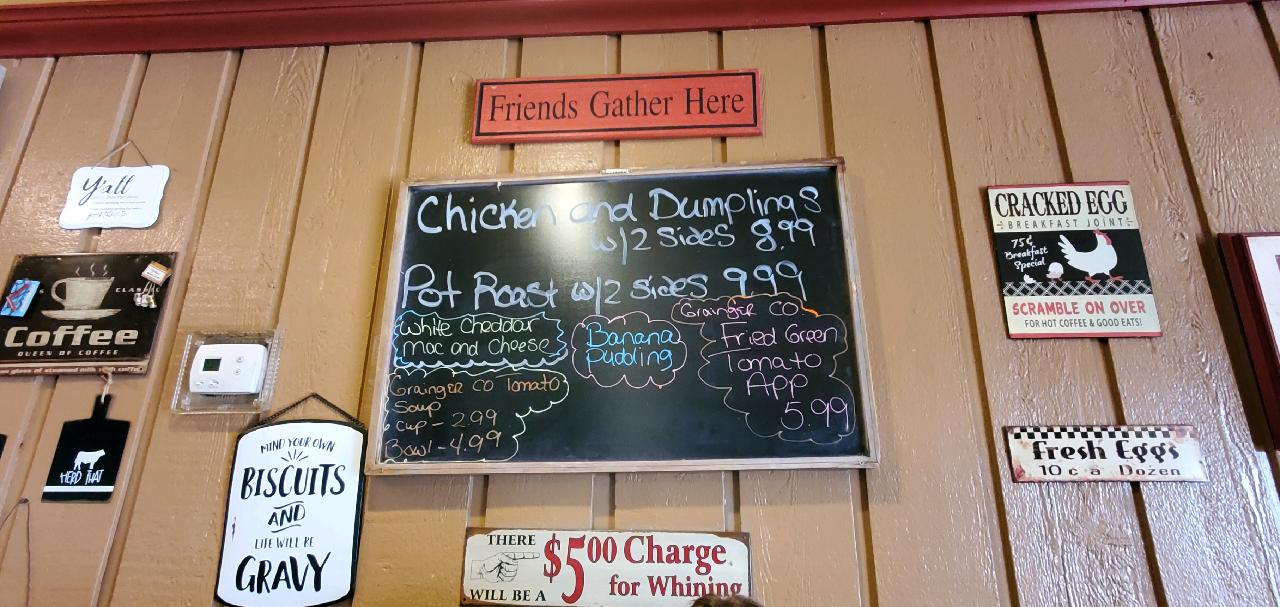 Friends Gather Here
Chicken and Dumplings
w/2 Sides 8.99
Pot Roast w/2 sides 9.99
White Cheddar
Mac and Cheese
Grainger CO Tomato
Soup
Cup - 2.99
Bowl - 4.99
Banana
pudding
Grainger CO
Fried Green
Tomato
App
5.99
Y'all
CLAS
Coffee
QUEEN OF COFFEE
HERD THAT
MIND YOUR OWN
BISCUITS
AND
LIFE WILL BE
GRAVY
THERE
WILL BE A
$5.00 Charge
for Whining
CRACKED EGG
BREAKFAST JOINT
75¢
Breakfast
Special
SCRAMBLE ON OVER
FOR HOT COFFEE & GOOD EATS!
Fresh Eggs
10¢ a Dozen